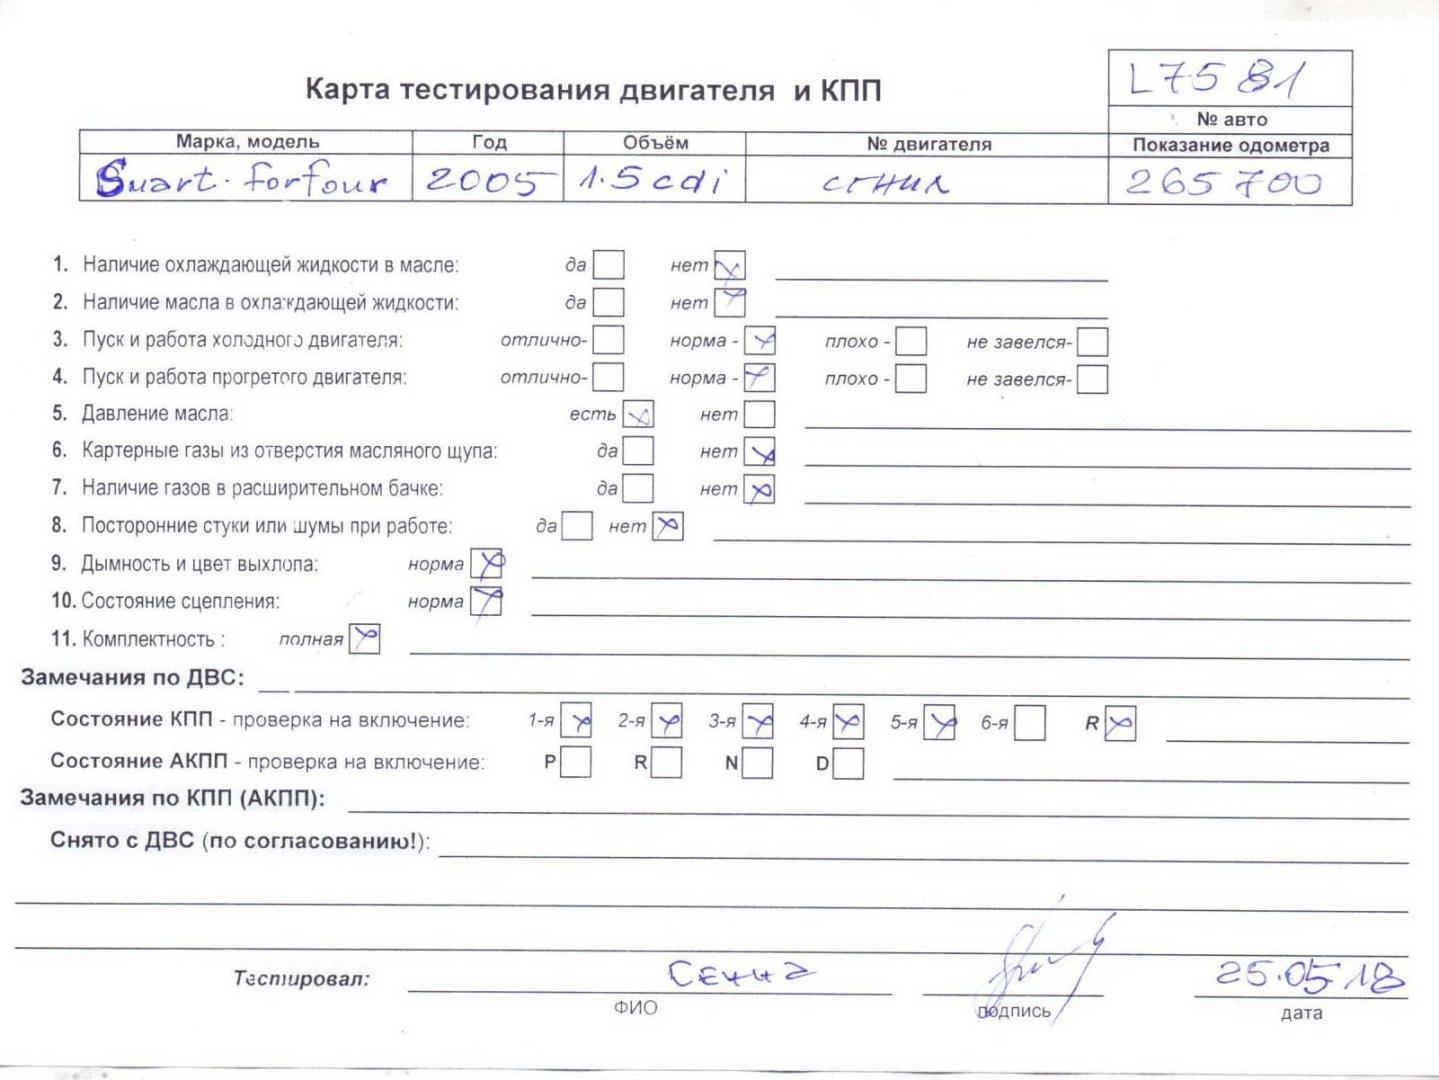 L7581
Карта тестирования двигателя и КПП
№ авто
Марка, модель Год Объём № двигателя Показание одометра
Smart forfour 2005 1.5 cdi сгнил 265700
1. Наличие охлаждающей жидкости в масле: да нет
2. Наличие масла в охлаждающей жидкости: да нет
3. Пуск и работа холодного двигателя: отлично- норма - плохо - не завелся-
4. Пуск и работа прогретого двигателя: отлично- норма - плохо - не завелся-
5. Давление масла: есть нет
6. Картерные газы из отверстия масляного щупа: да нет
7. Наличие газов в расширительном бачке: да нет
8. Посторонние стуки или шумы при работе: да нет
9. Дымность и цвет выхлопа: норма
10. Состояние сцепления: норма
11. Комплектность : полная
Замечания по ДВС:
Состояние КПП - проверка на включение: 1-я 2-я 3-я 4-я 5-я 6-я R
Состояние АКПП - проверка на включение: P R N D
Замечания по КПП (АКПП):
Снято с ДВС (по согласованию!):
Тестировал: 25.05.18
ФИО подпись дата